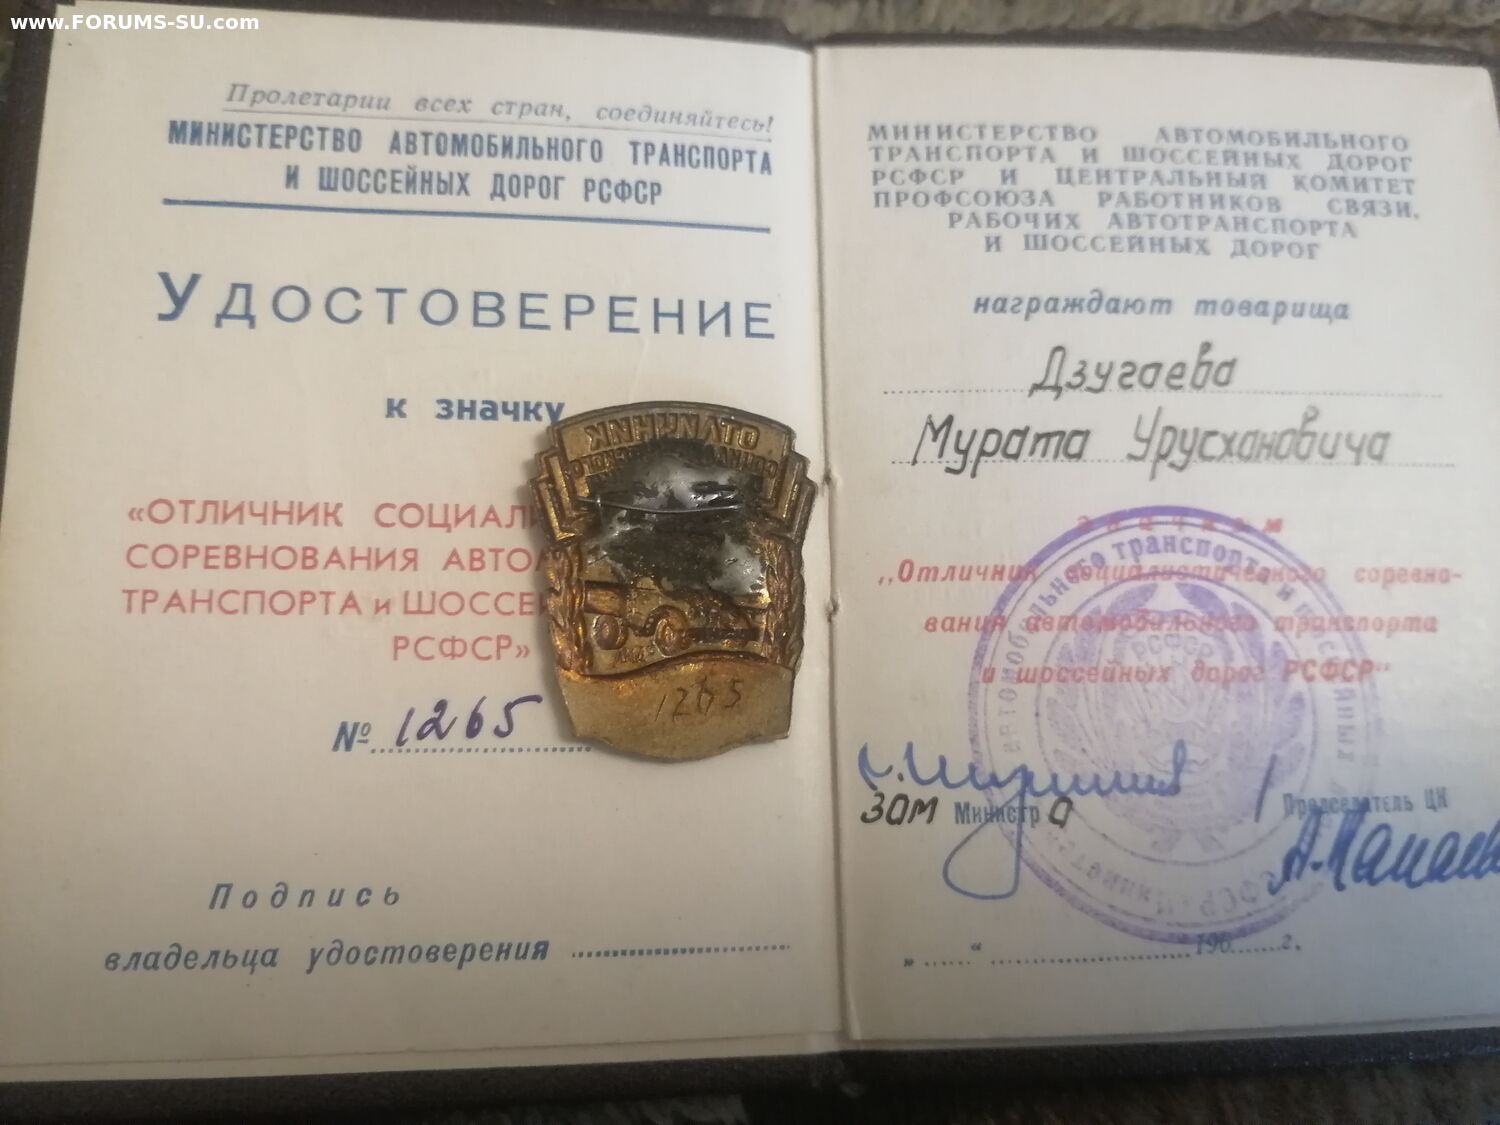 www.FORUMS-SU.com
Пролетарии всех стран, соединяйтесь!
МИНИСТЕРСТВО АВТОМОБИЛЬНОГО ТРАНСПОРТА
И ШОССЕЙНЫХ ДОРОГ РСФСР
УДОСТОВЕРЕНИЕ
к значку
«ОТЛИЧНИК СОЦИАЛИ
СОРЕВНОВАНИЯ АВТО
ТРАНСПОРТА и ШОССЕ
РСФСР»
№ 1265
Подпись
владельца удостоверения
ОТЛИЧНИК
1265
МИНИСТЕРСТВО АВТОМОБИЛЬНОГО
ТРАНСПОРТА И ШОССЕЙНЫХ ДОРОГ
РСФСР И ЦЕНТРАЛЬНЫЙ КОМИТЕТ
ПРОФСОЮЗА РАБОТНИКОВ СВЯЗИ,
РАБОЧИХ АВТОТРАНСПОРТА
И ШОССЕЙНЫХ ДОРОГ
награждают товарища
Дзугаева
Мурата Урусхановича
значком
„Отличник социалистического соревно-
вания автомобильного транспорта
и шоссейных дорог РСФСР"
автомобильного транспорта и
РСФСР
зам Министра
Председатель ЦК
„ “ 196 г.